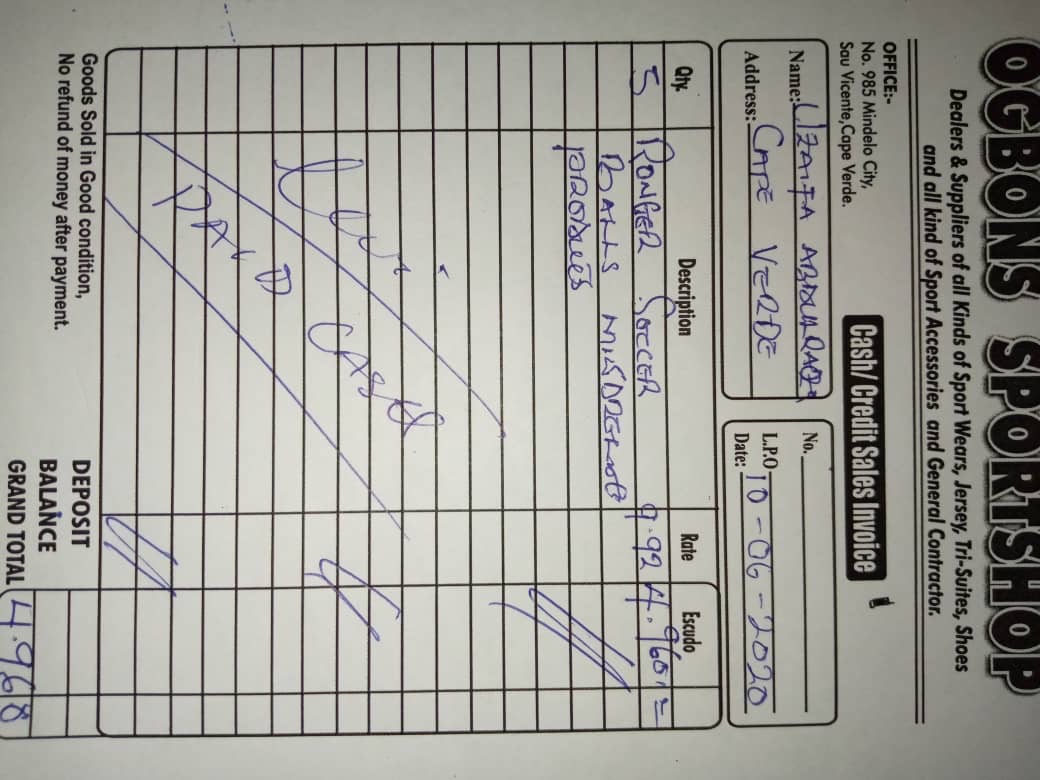 OGBONS SPORTSHOP
Dealers & Suppliers of all Kinds of Sport Wears, Jersey, Tri-Suites, Shoes
and all kind of Sport Accessories and General Contractor.
OFFICE:-
No. 985 Mindelo City,
Sau Vicente, Cape Verde.
Cash/Credit Sales Invoice
Name:
Address: CAPE VERDE
No.
L.P.O
Date: 10-06-2020
Qty. Description Rate Escudo
5 SOCCER 9.92 4.960,=
BALLS
DEPOSIT
BALANCE
GRAND TOTAL 4.960
Goods Sold in Good condition,
No refund of money after payment.